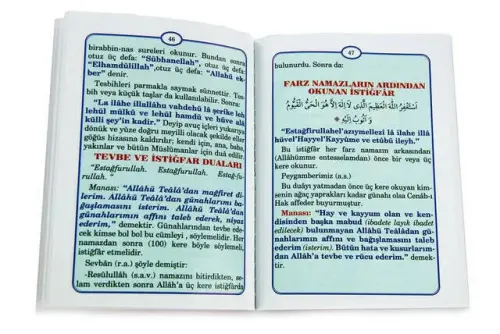 46
birabbin-nas sureleri okunur. Bundan sonra
otuz üç defa: "Sübhanellah", otuz üç defa:
"Elhamdülillah",otuz üç defa: "Allahü ek-
ber" denir.
Tesbihleri parmakla saymak sünnettir. Tes-
bih veya küçük taşlar da kullanılabilir. Sonra:
"La ilâhe illallâhu vahdehû lâ şerike leh
lehül mülkü ve lehül hamdü ve hüve alâ
külli şey'in kadir." Deyip avuç içleri yukarıya
dönük ve yüze doğru meyilli olarak, şekilde eller
göğüs hizasına kaldırılır; kendi için, ana, baba,
yakınlar ve bütün Müslümanlar için dua edilir.
TEVBE VE İSTİĞFAR DUALARI
"Estağfurullah. Estağfurullah. Estağ-fu-
rullah."
Manası: "Allâhü Teâlâ'dan mağfiret di-
lerim. Allâhü Teâlâ'dan günahlarımı ba-
ğışlamasını isterim. Allâhü Teâlâ'dan
günahlarımın affını taleb ederek, niyaz
ederim," demektir. Günahlarından tevbe ede-
cek kimse bol bol bu cümleyi , söylemelidir. Her
namazdan sonra (100) kere böyle söylemeli,
istiğfar etmelidir.
Sevbân (r.a.) şöyle demiştir:
-Resûlullâh (s.a.v.) namazını bitirdikten, se-
lam verdikten sonra Allâh'a üç kere istiğfarda
47
bulunurdu. Sonra da:
FARZ NAMAZLARIN ARDINDAN
OKUNAN İSTİĞFÂR
اَسْتَغْفِرُ اللّٰهَ الْعَظِيمَ الَّذِي لَا اِلٰهَ اِلَّا هُوَ الْحَيُّ الْقَيُّومُ
وَ اَتُوبُ اِلَيْهِ
"Estağfirullahel'azıymellezi lâ ilahe illâ
hüvel'Hayyel'Kayyûme ve etûbü ileyh."
Bu istiğfar her farz namazın arkasından
(Allâhümme entesselamdan) önce bir veya üç
kere okunur.
Peygamberimiz (s.a.)
Bu duâyı yatmadan önce üç kere okuyan kimse-
nin ağaç yaprakları kadar günahı olsa Cenâb-ı
Hak affeder buyurmuştur.
Manası: "Hay ve kayyum olan ve ken-
disinden başka mabud (ibadete layık ibadet
edilecek) bulunmayan Allâhü Teâlâdan gü-
nahlarımın affını ve bağışlamasını taleb
ederim (isterim). Bütün hata ve kusurlarım-
dan Allâh'a tevbe ve rücu ederim." demek-
tir.